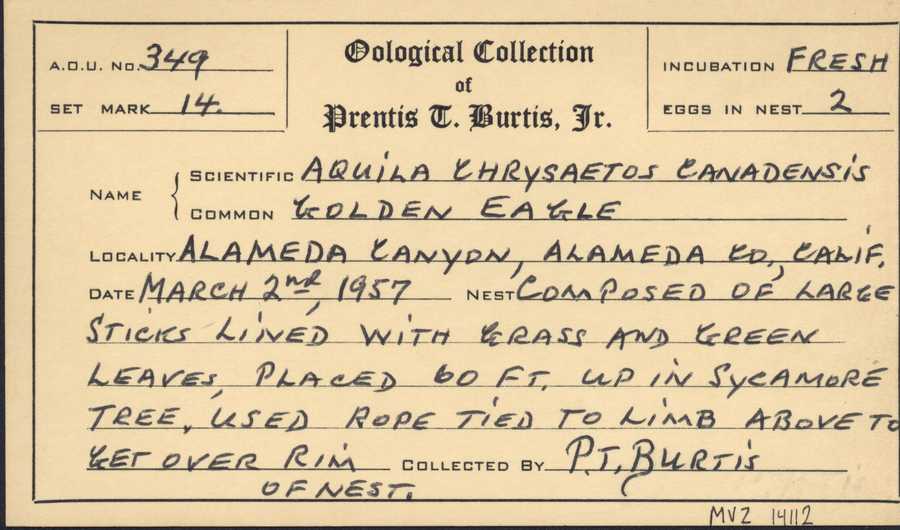 A.O.U. No. 349
SET MARK 14.
Oological Collection
of
Prentis T. Burtis, Jr.
INCUBATION FRESH
EGGS IN NEST 2
NAME
SCIENTIFIC AQUILA CHRYSAETOS CANADENSIS
COMMON GOLDEN EAGLE
LOCALITY ALAMEDA CANYON, ALAMEDA CO., CALIF.
DATE MARCH 2nd, 1957 NEST COMPOSED OF LARGE
STICKS LINED WITH GRASS AND GREEN
LEAVES, PLACED 60 FT. UP IN SYCAMORE
TREE. USED ROPE TIED TO LIMB ABOVE TO
GET OVER RIM COLLECTED BY P.T. BURTIS
OF NEST.
MVZ 14112